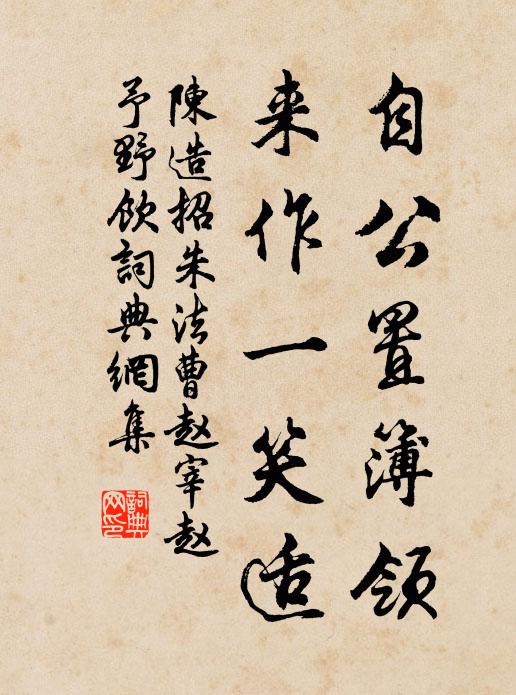 自公置簿领
来作一笑适
陳造招朱法曹赵宰赵
予野飲詞典網集
詞典
网印